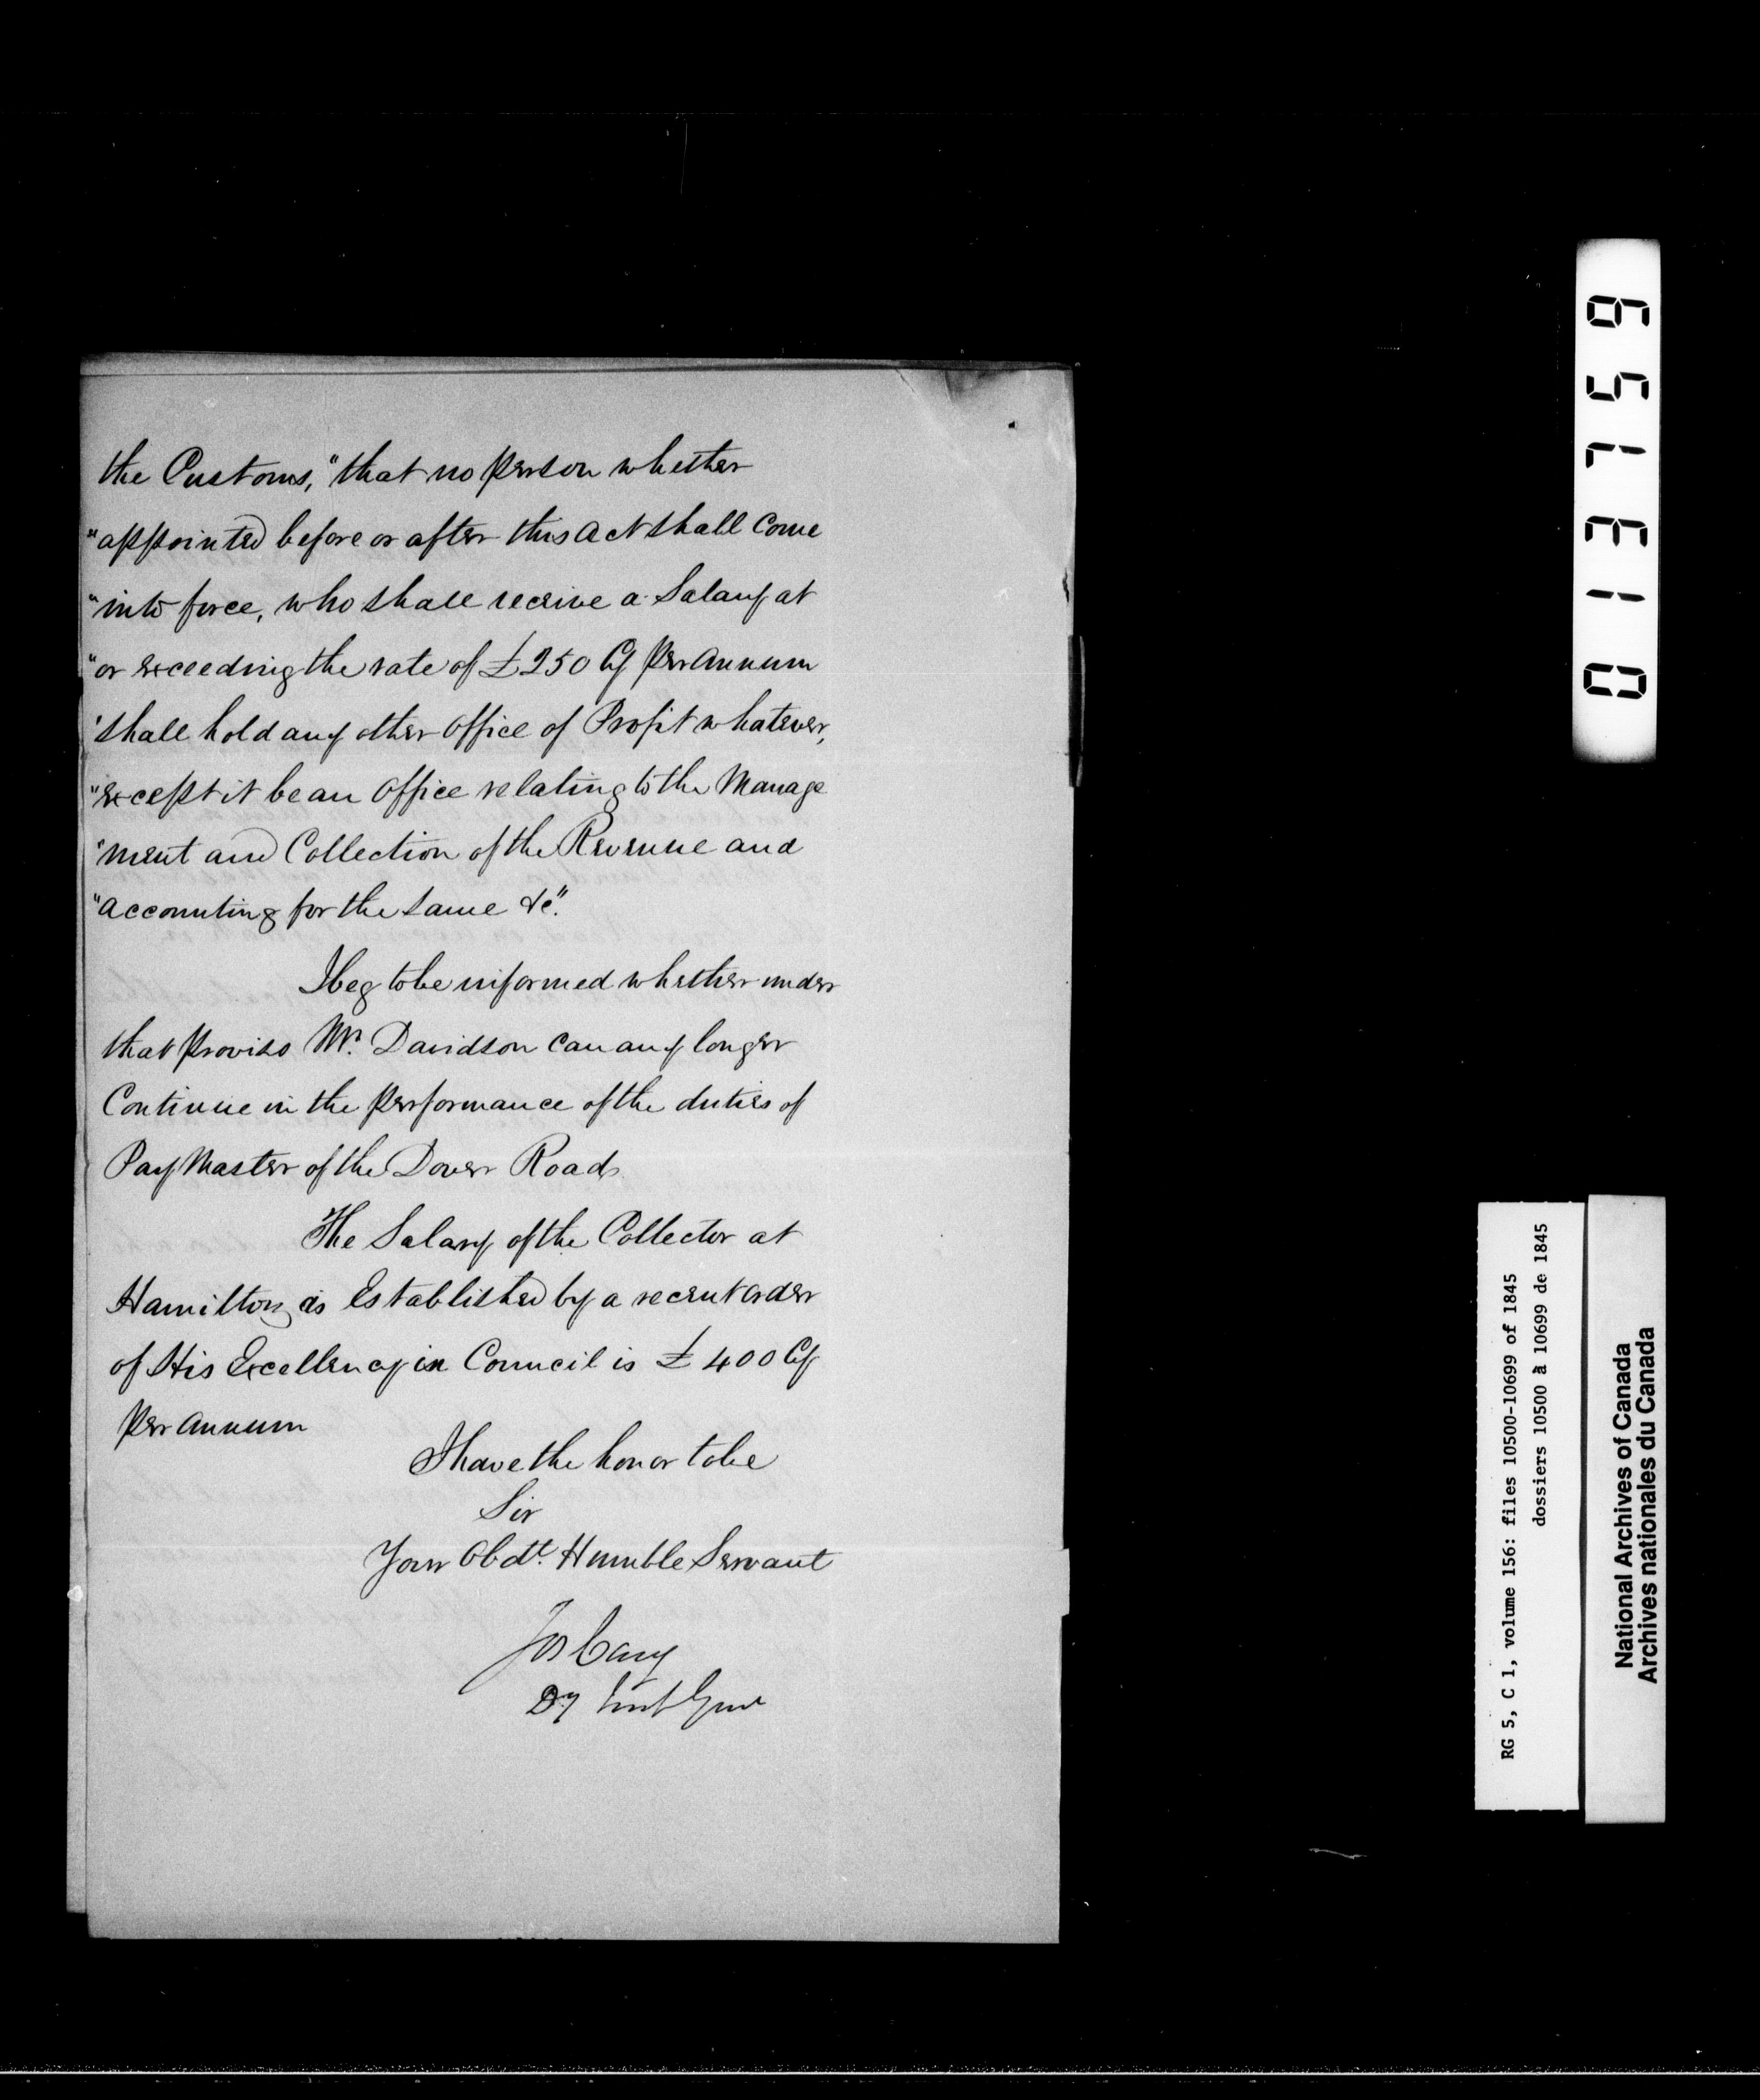 the Customs, "that no person whether
"appointed before or after this Act shall Come
"into force, who shall receive a Salary at
"or exceeding the rate of £250 Cy per Annum
"shall hold any other Office of Profit whatever,
"except it be an Office relating to the Manage
"ment and Collection of the Revenue and
"accounting for the same &c".
I beg to be informed whether under
that proviso Mr. Davidson can any longer
Continue in the performance of the duties of
Pay Master of the Dover Road
The Salary of the Collector at
Hamilton as Established by a recent order
of His Excellency in Council is £400 Cy
per Annum
I have the honor to be
Sir
Your Obdt. Humble Servant
Jos Cary
Dy Inspt Genl
0131759
RG 5, C 1, volume 156: files 10500-10699 of 1845
dossiers 10500 à 10699 de 1845
National Archives of Canada
Archives nationales du Canada